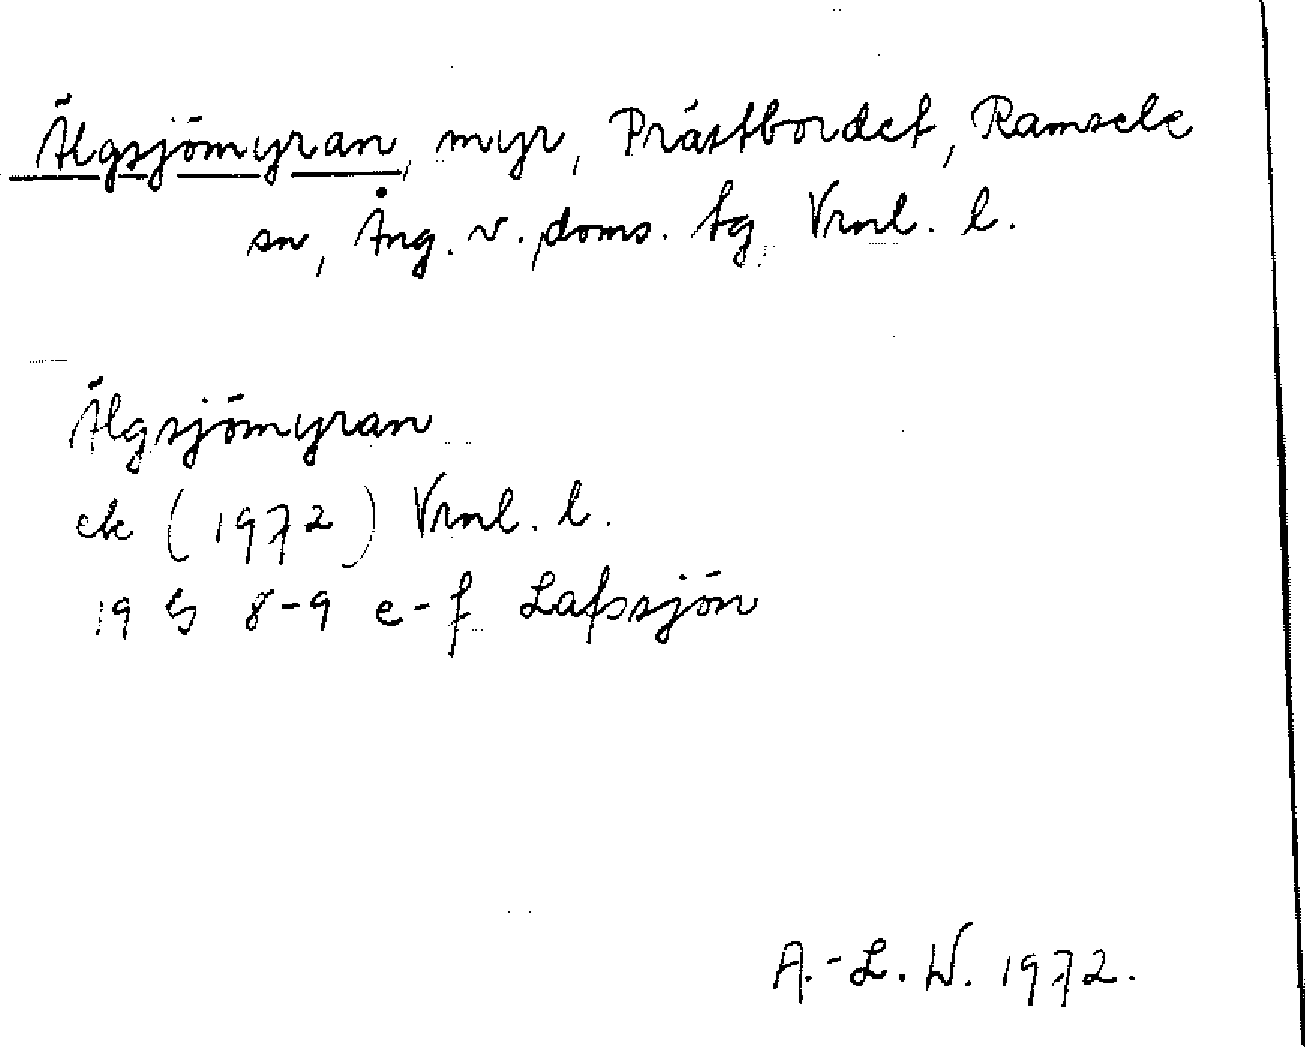 Älgsjömyran, myr, Prästbordet, Ramsele
sn, Ång. v. doms. tg Vrnl. l.
Älgsjömyran
ek (1972) Vrnl. l.
19 G 8-9 e-f Lafssjön
A.-L. W. 1972.